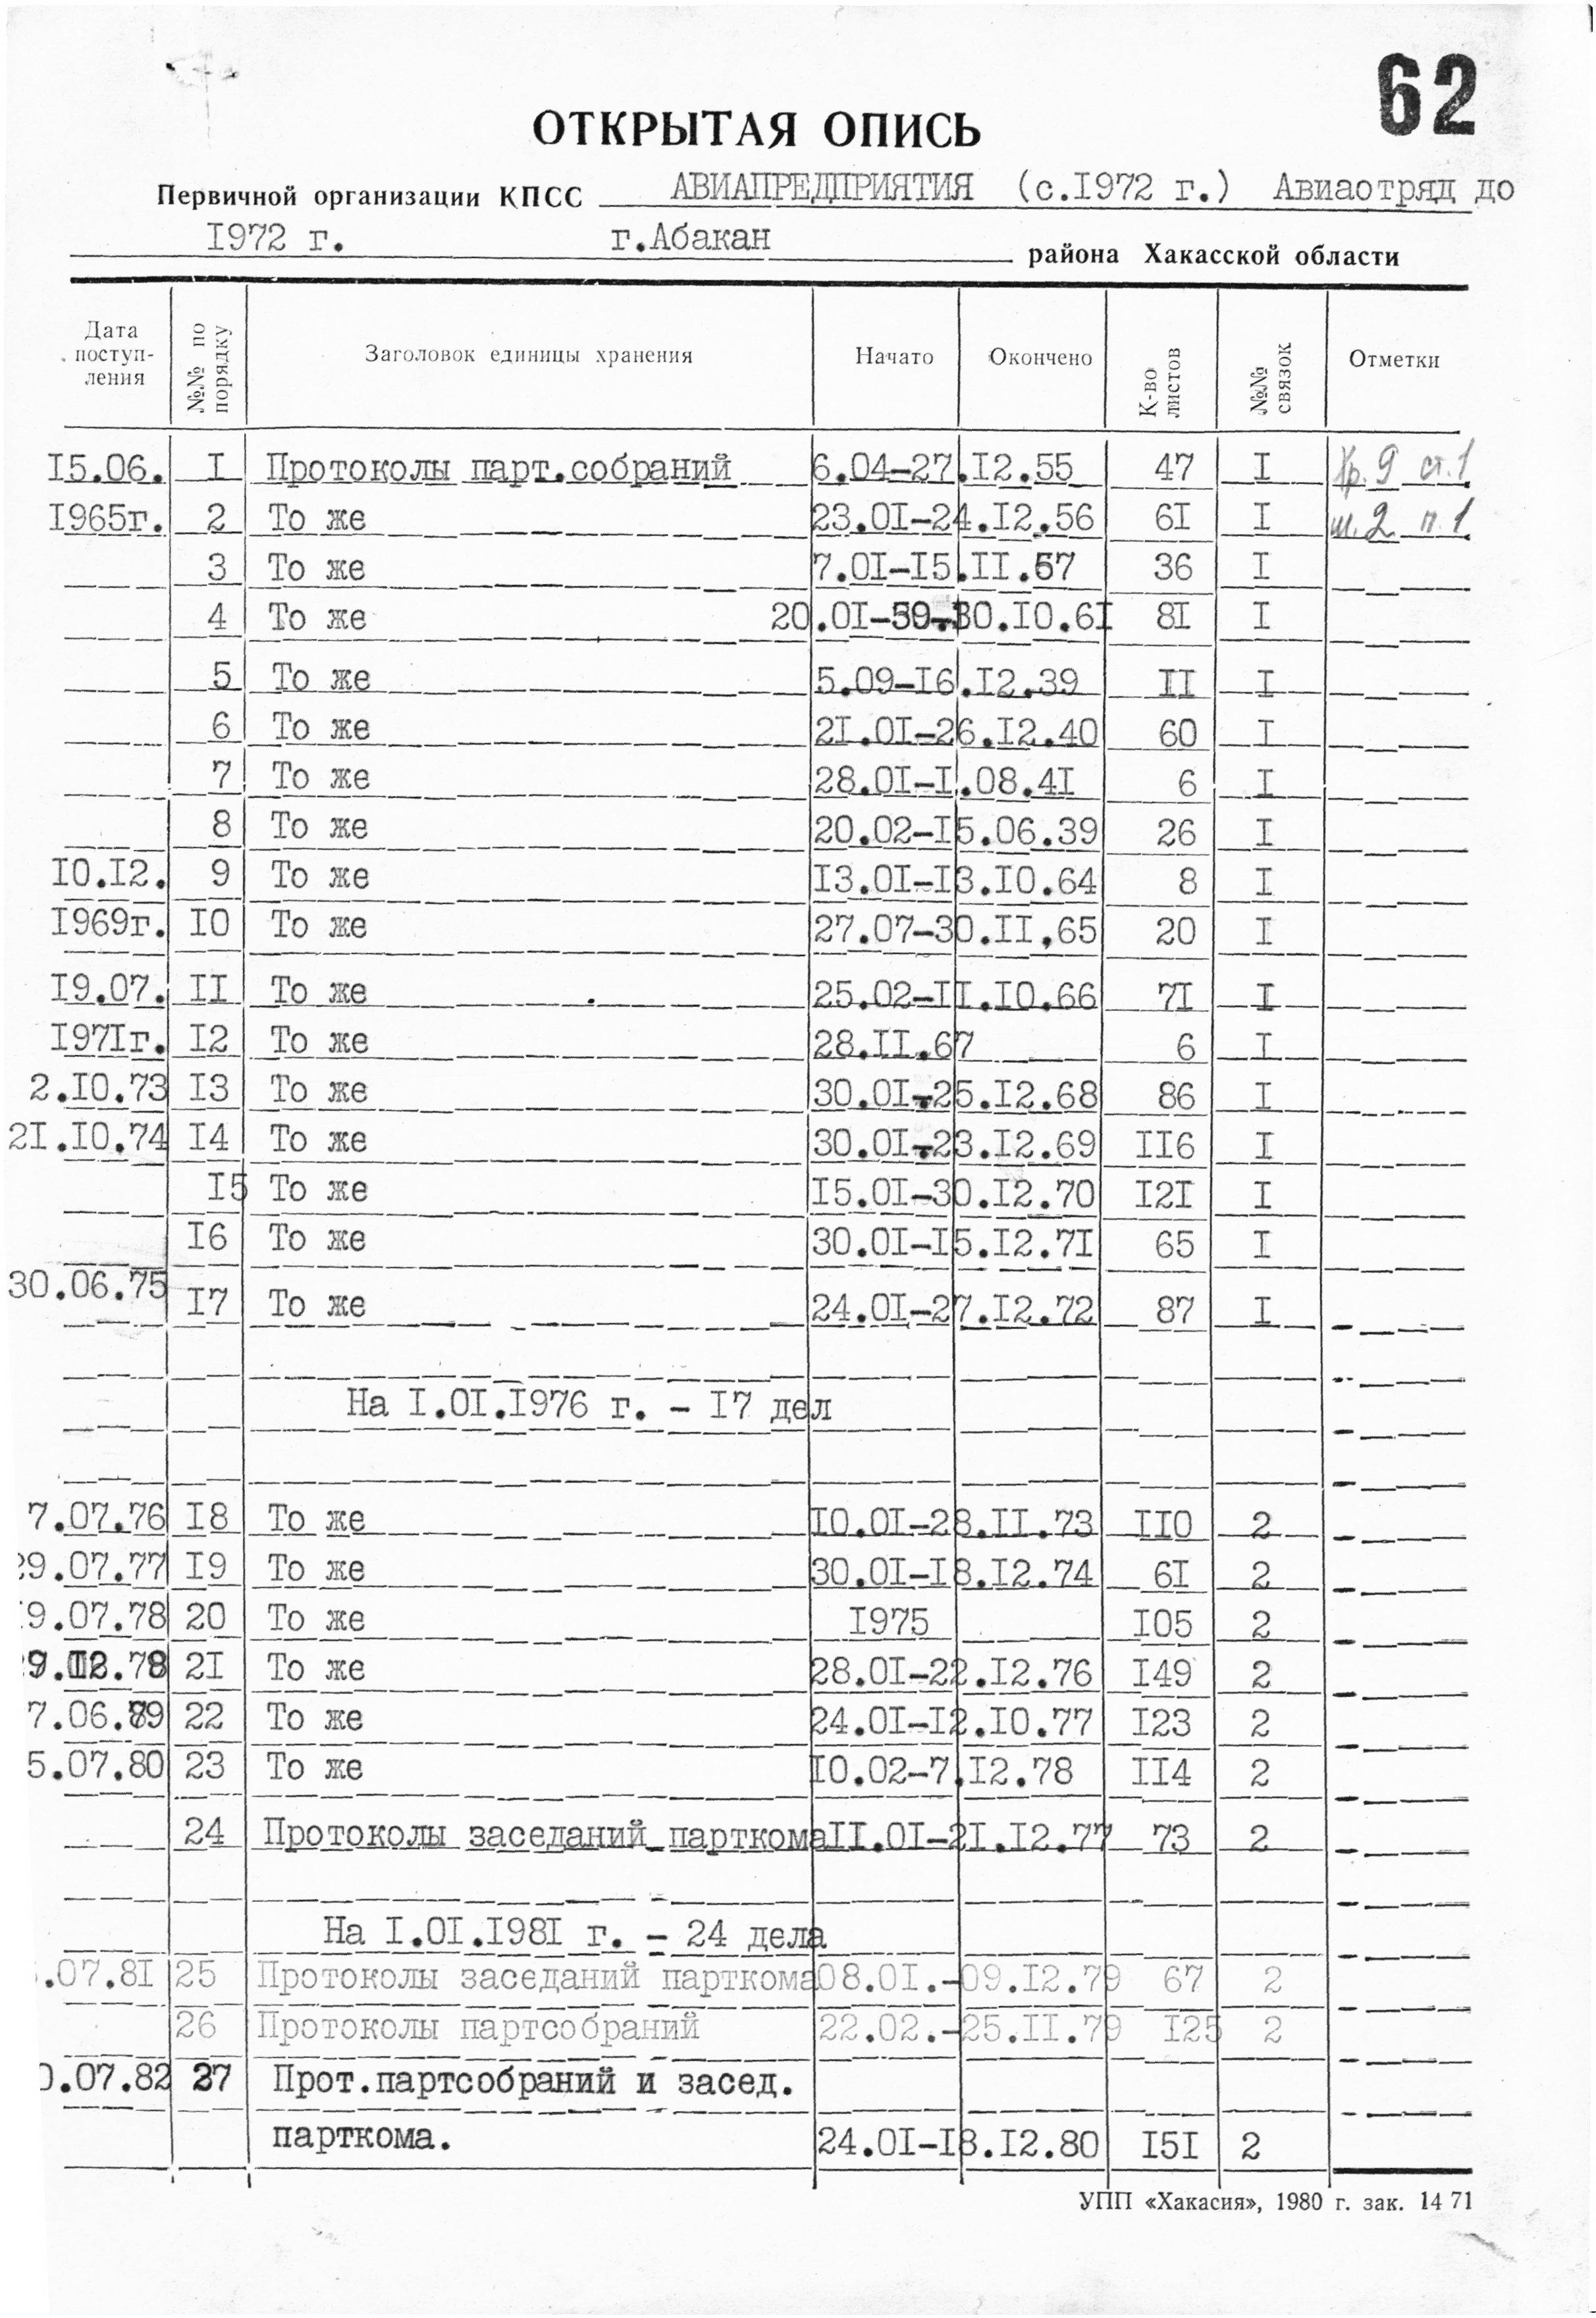 62
ОТКРЫТАЯ ОПИСЬ
Первичной организации КПСС АВИАПРЕДПРИЯТИЯ (с.I972 г.) Авиаотряд до
I972 г. г.Абакан района Хакасской области
Дата поступ-ления №№ по порядку Заголовок единицы хранения Начато Окончено К-во листов №№ связок Отметки
I5.06. I Протоколы парт.собраний 6.04-27.I2.55 47 I Хр. 9 ст.1
I965г. 2 То же 23.0I-24.I2.56 6I I ш.2 п.1
3 То же 7.0I-I5.II.57 36 I
4 То же 20.0I- 30.I0.6I 8I I
5 То же 5.09-I6.I2.39 II I
6 То же 2I.0I-26.I2.40 60 I
7 То же 28.0I-I.08.4I 6 I
8 То же 20.02-I5.06.39 26 I
I0.I2. 9 То же I3.0I-I3.I0.64 8 I
I969г. I0 То же 27.07-30.II,65 20 I
I9.07. II То же 25.02-II.I0.66 7I I
I97Iг. I2 То же 28.II.67 6 I
2.I0.73 I3 То же 30.0I-25.I2.68 86 I
2I.I0.74 I4 То же 30.0I-23.I2.69 II6 I
I5 То же I5.0I-30.I2.70 I2I I
I6 То же 30.0I-I5.I2.7I 65 I
30.06.75 I7 То же 24.0I-27.I2.72 87 I
На I.0I.I976 г. - I7 дел
7.07.76 I8 То же I0.0I-28.II.73 II0 2
29.07.77 I9 То же 30.0I-I8.I2.74 6I 2
9.07.78 20 То же I975 I05 2
2I То же 28.0I-22.I2.76 I49 2
7.06.79 22 То же 24.0I-I2.I0.77 I23 2
5.07.80 23 То же I0.02-7.I2.78 II4 2
24 Протоколы заседаний парткома II.0I-2I.I2.77 73 2
На I.0I.I98I г. - 24 дела
.07.8I 25 Протоколы заседаний парткома 08.0I.-09.I2.79 67 2
26 Протоколы партсобраний 22.02.-25.II.79 I25 2
0.07.82 27 Прот.партсобраний и засед.
парткома. 24.0I-I8.I2.80 I5I 2
УПП «Хакасия», 1980 г. зак. 1471